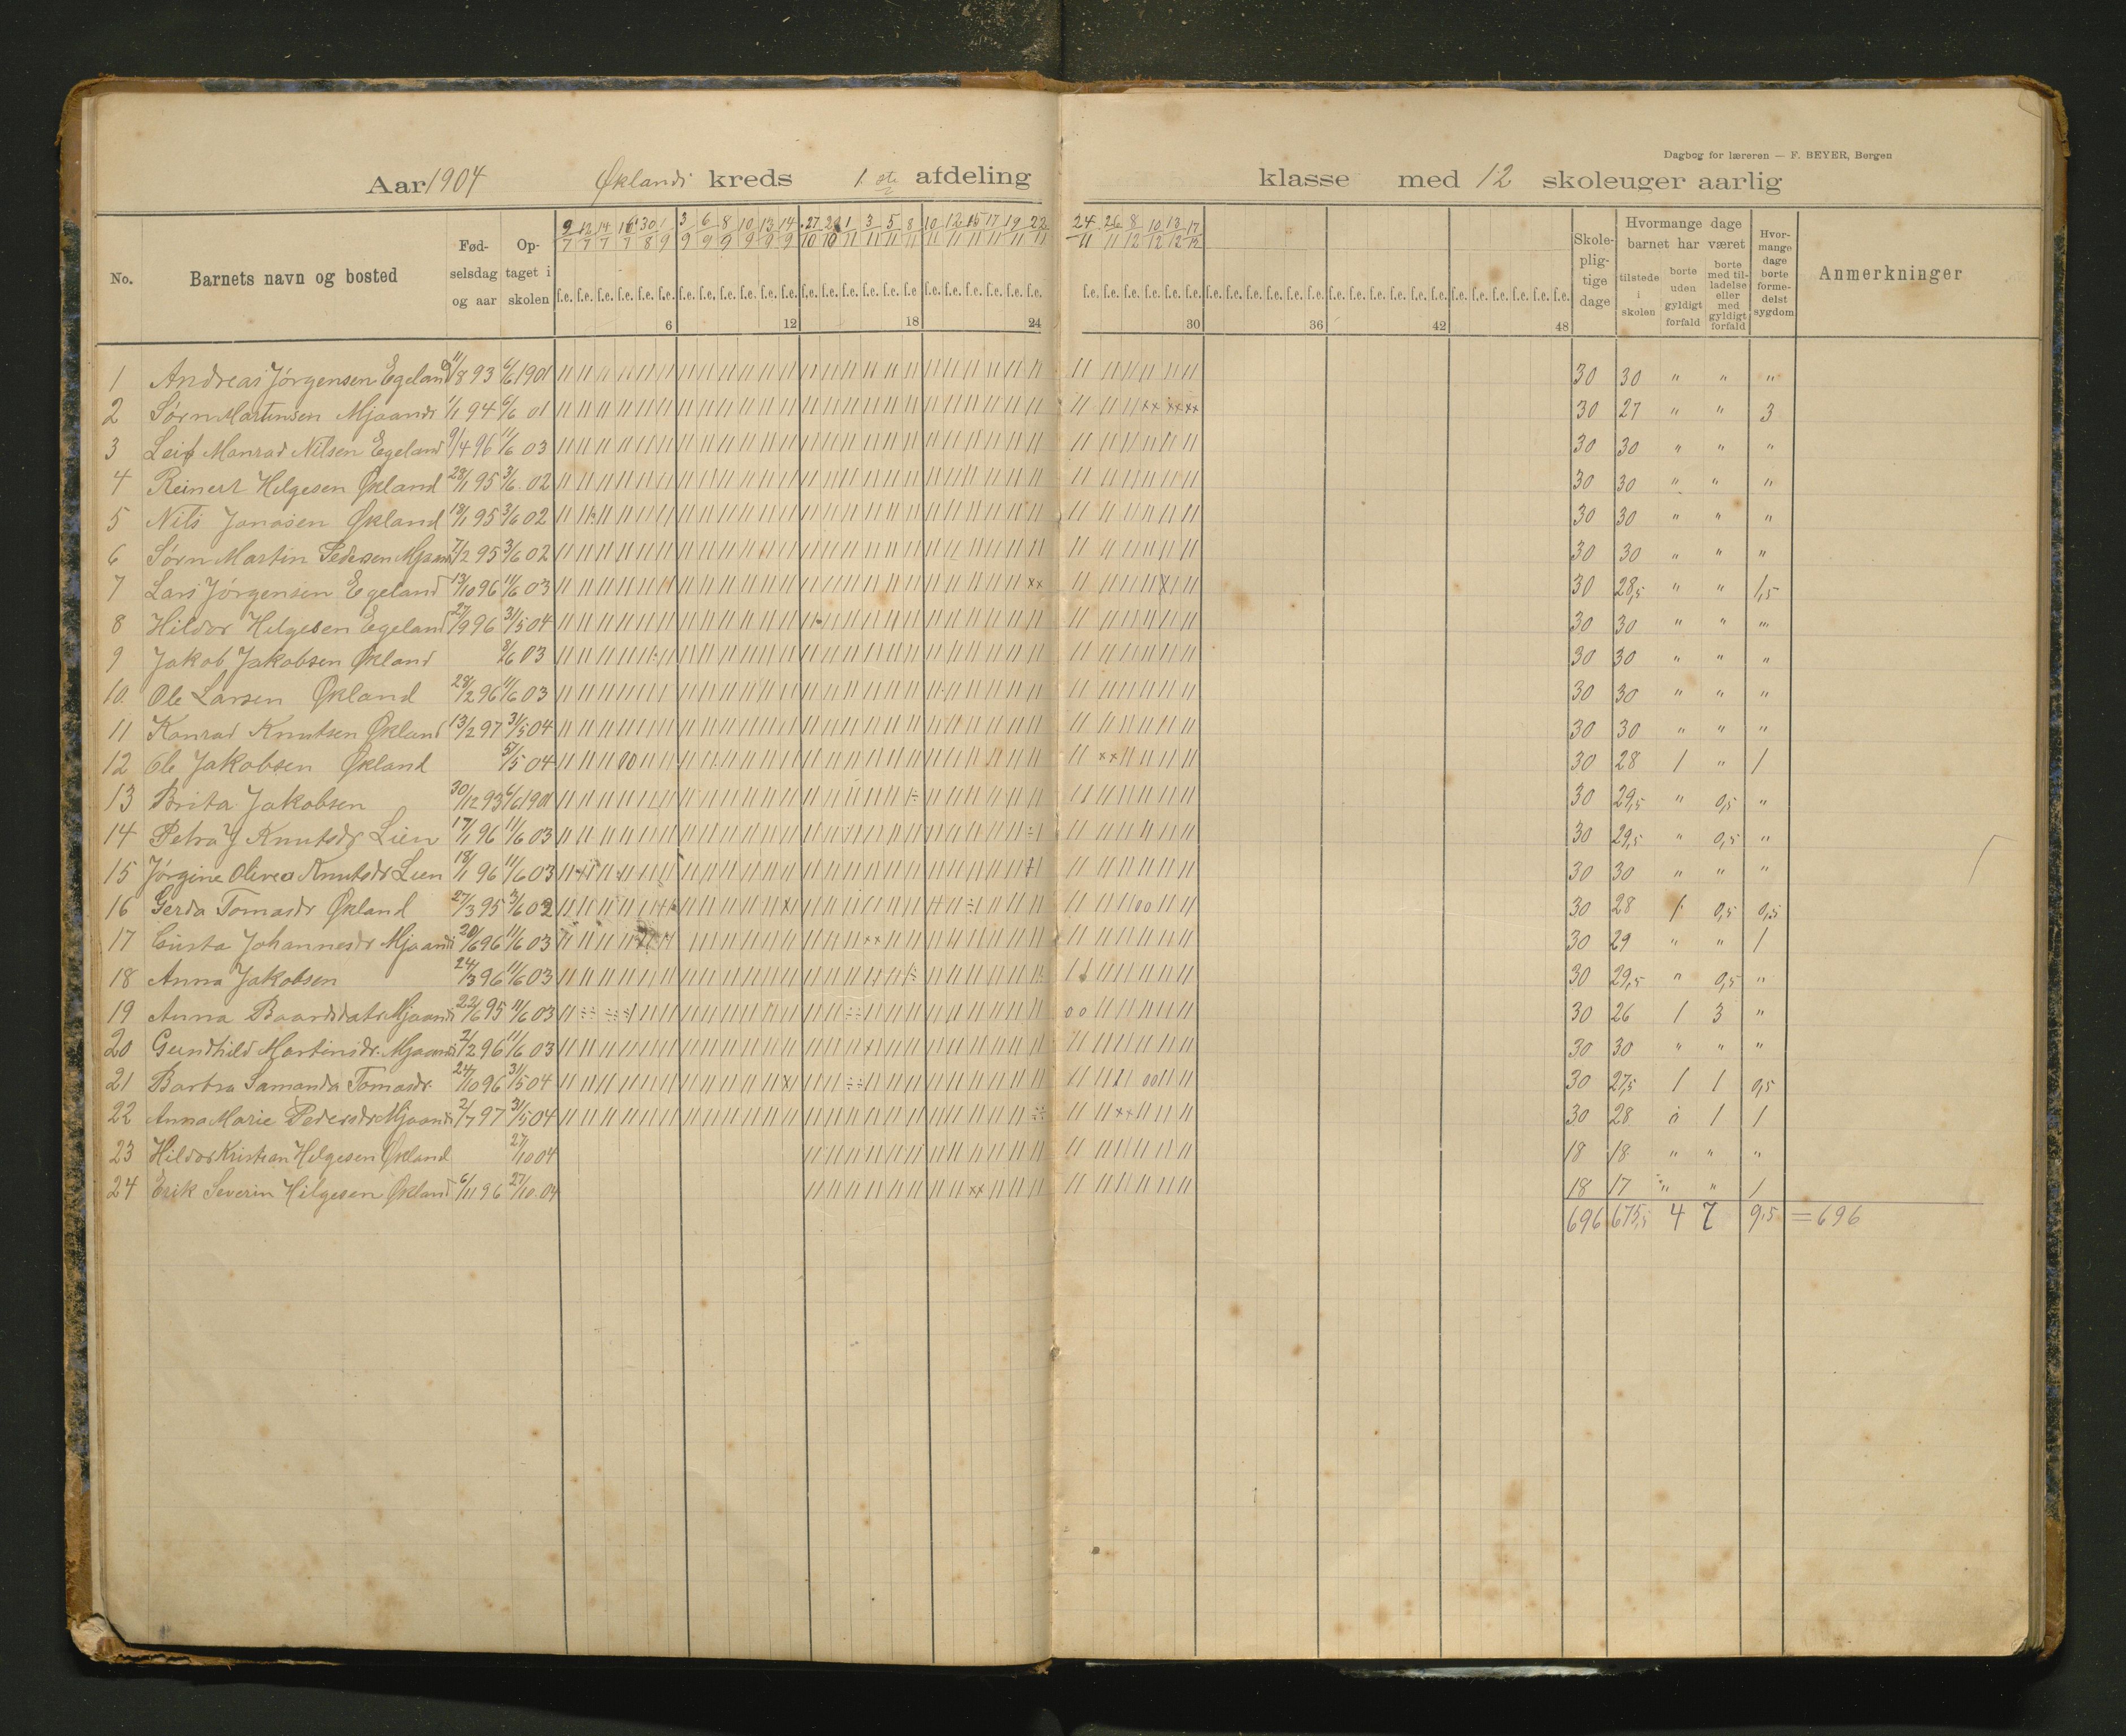 Dagbog for læreren — F. BEYER, Bergen
Aar 1904 Øklands kreds 1. ste afdeling klasse med 12 skoleuger aarlig
No. Barnets navn og bosted Fødselsdag og aar Optaget i skolen
9/7 12/7 14/7 16/7 30/8 1/9 3/9 6/9 8/9 10/9 13/9 14/9 27/10 29/10 1/11 3/11 5/11 8/11 10/11 12/11 15/11 17/11 19/11 22/11 24/11 26/11 8/12 10/12 13/12 17/12
6 12 18 24 30 36 42 48
Skolepligtige dage
Hvormange dage barnet har været
tilstede i skolen
borte uden gyldigt forfald
borte med tilladelse eller med gyldigt forfald
Hvormange dage borte formedelst sygdom
Anmerkninger
1 Andreas Jørgensen Egeland 11/8 93 6/6 1901 30 30 " " "
2 Sørn Martinsen Mjaands 1/1 94 6/6 01 30 27 " " 3
3 Leif Monrad Nilsen Egeland 9/4 96 11/6 03 30 30 " " "
4 Reinert Helgesen Økland 23/1 95 3/6 02 30 30 " " "
5 Nils Jonasen Økland 13/1 95 3/6 02 30 30 " " "
6 Sørn Martin Pedersen Mjaands 7/2 95 3/6 02 30 30 " " "
7 Lars Jørgensen Egeland 13/10 96 11/6 03 30 28,5 " " 1,5
8 Hildor Helgesen Egeland 27/9 96 31/5 04 30 30 " " "
9 Jakob Jakobsen Økland 8/6 03 30 30 " " "
10. Ole Larsen Økland 28/2 96 11/6 03 30 30 " " "
11 Konrad Knutsen Økland 13/2 97 31/5 04 30 30 " " "
12 Ole Jakobsen Økland 5/5 04 30 28 1 " 1
13 Brita Jakobsen 30/12 93 6/6 1901 30 29,5 " 0,5 "
14 Petra J Knutsdr Lien 17/1 96 11/6 03 30 29,5 " 0,5 "
15 Jørgine Olivea Knutsdr Lien 18/1 96 11/6 03 30 30 " " "
16 Gerda Tomasdr Økland 27/3 95 3/6 02 30 28 1 0,5 0,5
17 Johannesdr Mjaands 20/6 96 11/6 03 30 29 " " 1
18 Anna Jakobsen 24/3 96 11/6 03 30 29,5 " 0,5 "
19 Anna Baardsdatr Mjaands 22/6 95 11/6 03 30 26 1 3 "
20 Gundhild Martinsdr. Mjaands 2/2 96 11/6 03 30 30 " " "
21 Bartra Samanda Tomasdr. 24/10 96 31/5 04 30 27,5 1 1 0,5
22 Anna Marie Pedersdr Mjaands 2/7 97 31/5 04 30 28 " 1 1
23 Hildor Kristian Helgesen Økland 27/10 04 18 18 " " "
24 Erik Severin Helgesen Økland 6/11 96 27/10.04 18 17 " " 1
696 675,5 4 7 9,5 = 696